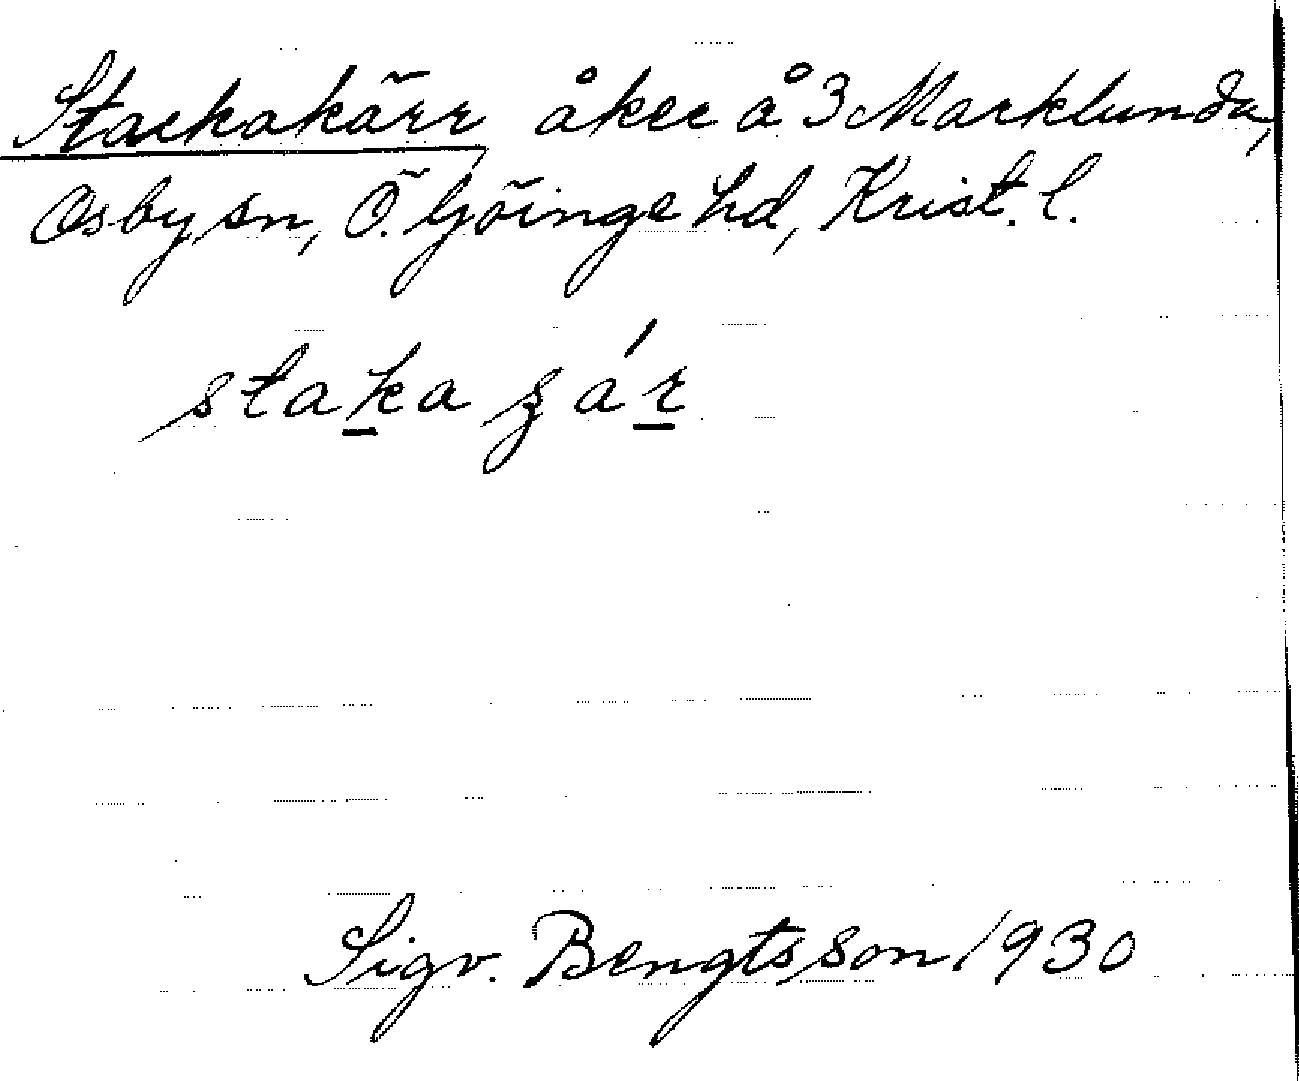 Stackakärr åker å 3 Marklunda,
Osby sn, Ö. Göinge hd, Krist. l.
staka
Sigv. Bengtsson 1930